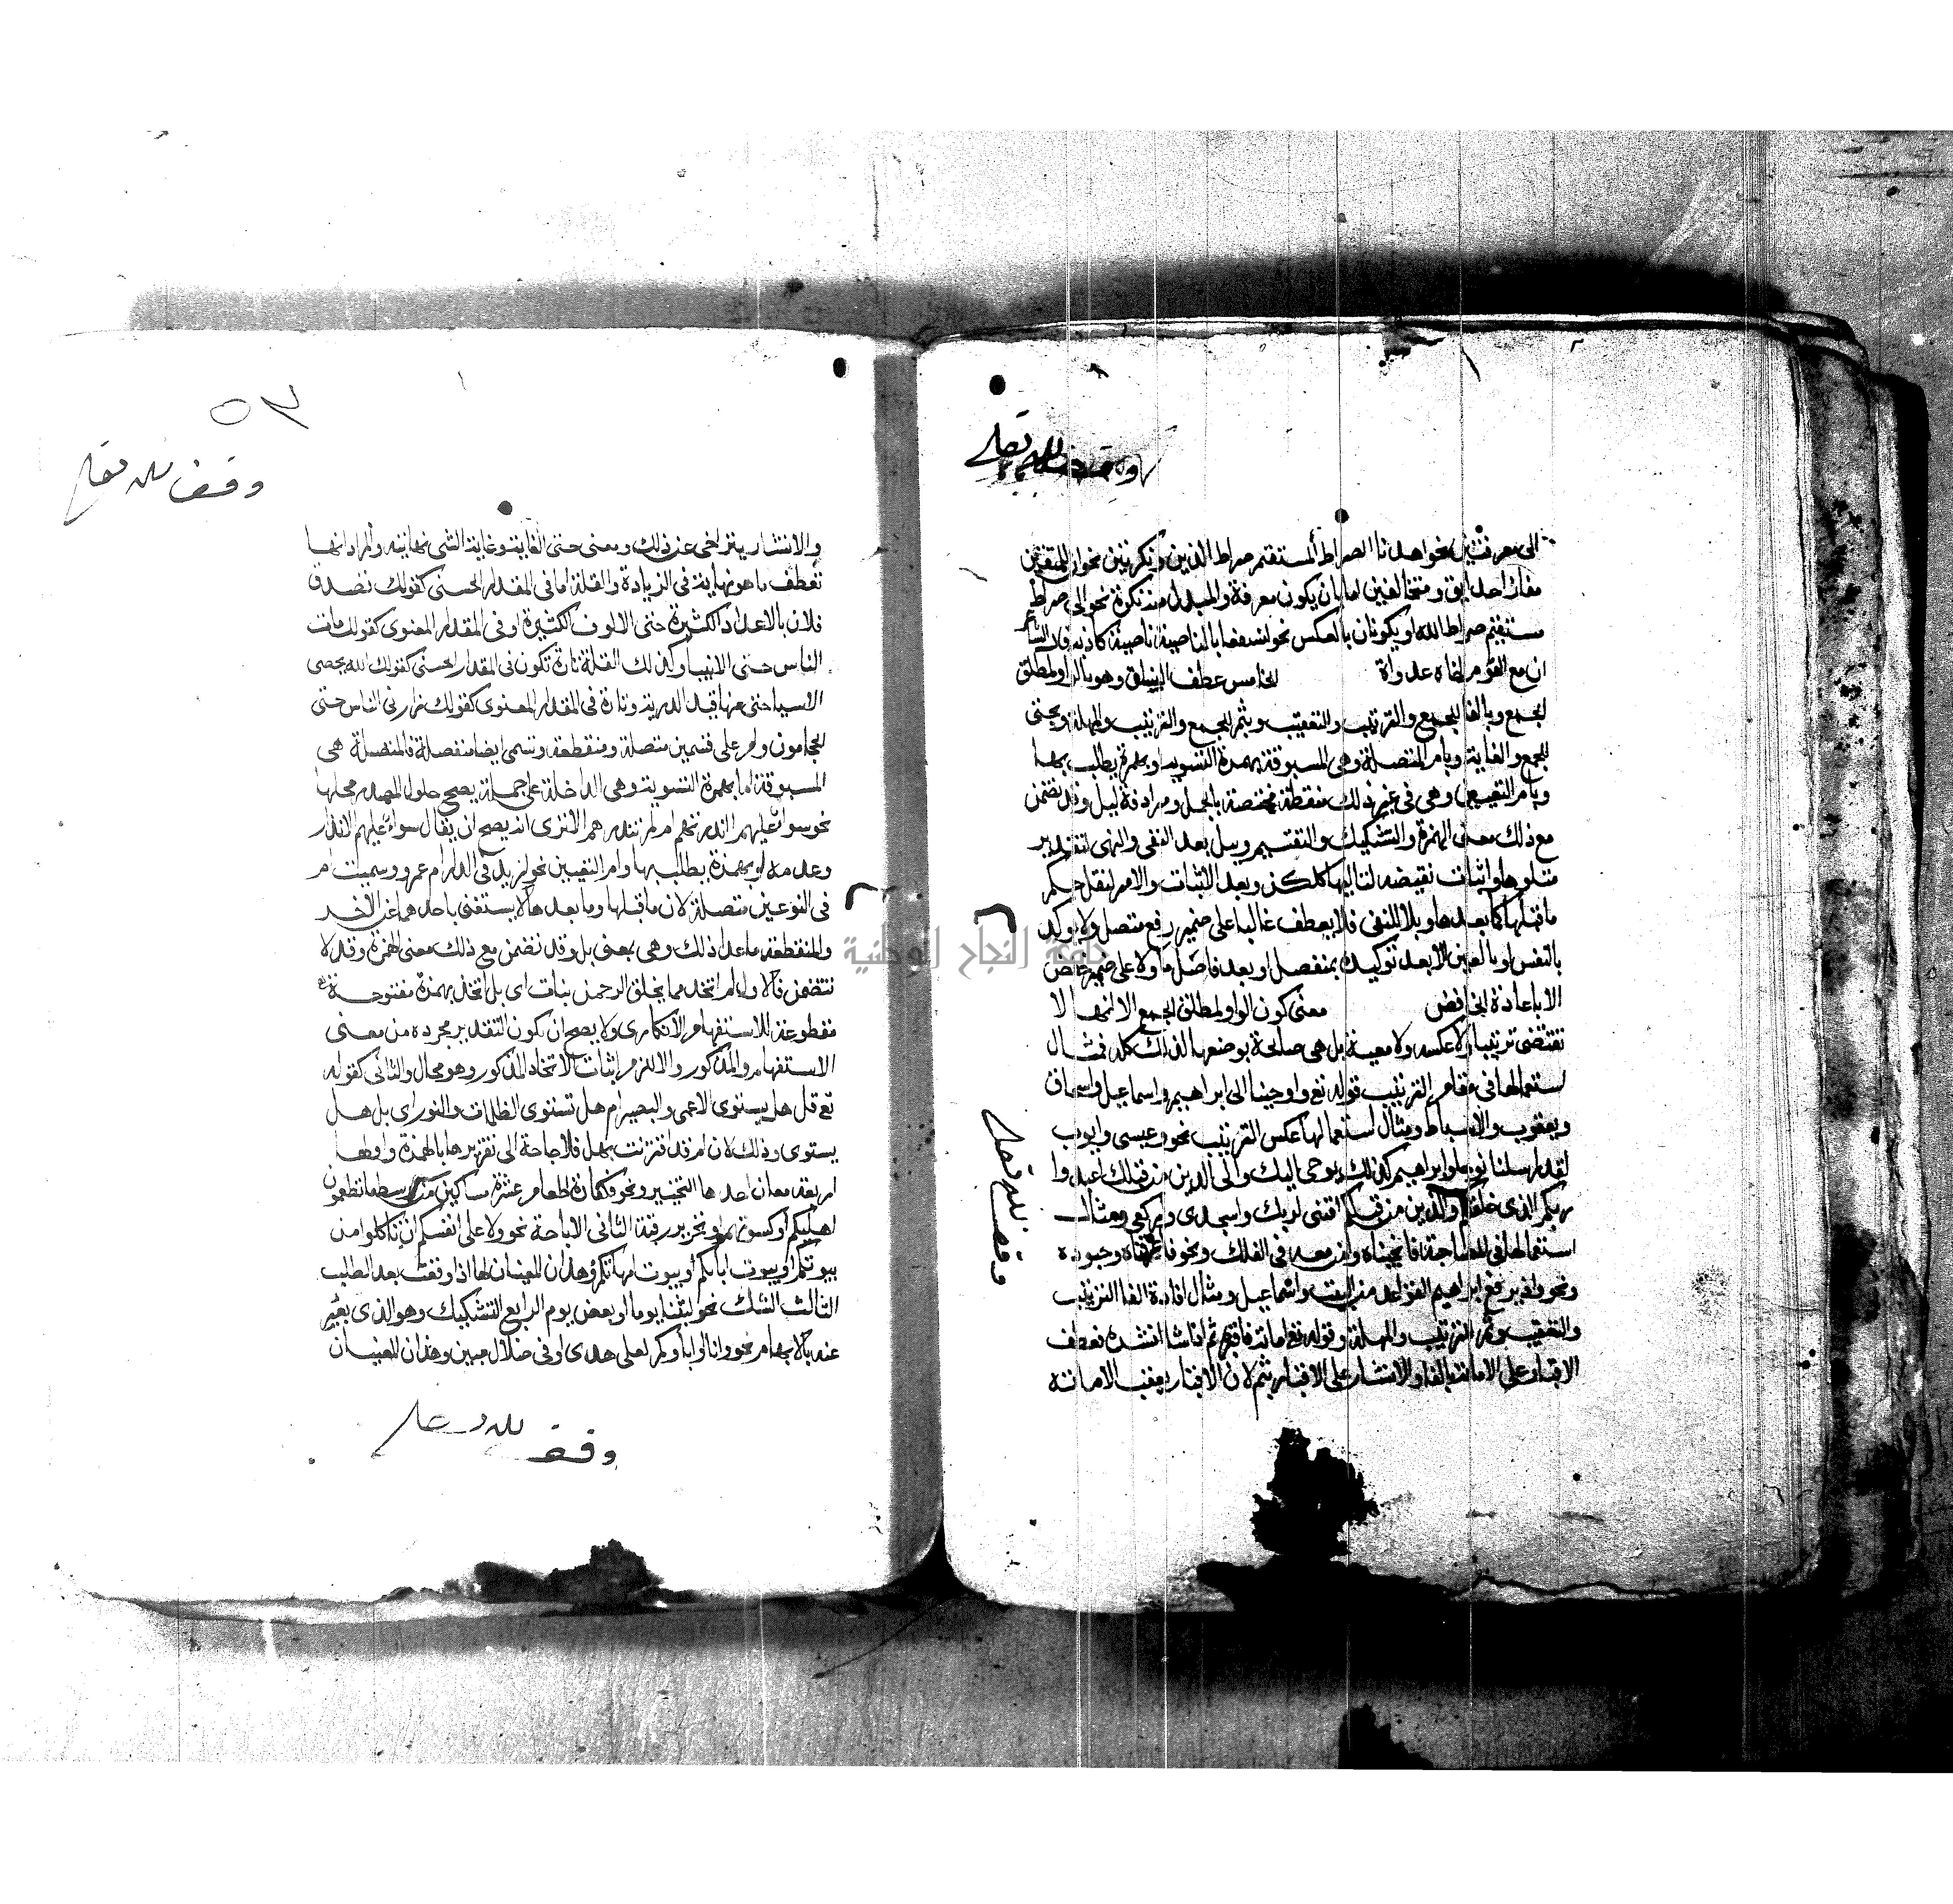 وقف لله تعالى
الى معرفتين نحو اهدنا الصراط المستقيم صراط الذين ونكرتين نحو ان للمتقين
مفازا حدايق ومتخالفين اما بان يكون معرفة والمبدل منه نكرة نحو الى صراط
مستقيم صراط الله او يكونان بالعكس نحو لنسفعا بالناصية ناصية كاذبة وقال الشاعر
ان مع اليوم اخاه غدوا الخامس عطف النسق وهو بالواو لمطلق
الجمع وبالفا للجمع والترتيب والتعقيب وبثم للجمع والترتيب والمهلة وبحتى
للجمع والغاية وبام المتصلة وهي المسبوقة بهمزة التسوية او بهمزة يطلب بها
وبام التعيين وهي في غير ذلك منقطعة مختصة بالجمل ومرادفة لبل وقد تضمن
مع ذلك معنى الهمزة والتشكيك والتقسيم وببل بعد النفى والنهى لتقرير
متلوها واثبات نقيضه لتاليها كلكن وبعد الاثبات والامر لنقل حكم
ما قبلها لما بعدها وبلا للنفى فلا يعطف غالبا على ضمير رفع متصل ولا يوكد
بالنفس او بالعين الا بعد توكيده بمنفصل او بعد فاصل ما ولا على ضمير خفض
الا باعادة الخافض معنى كون الواو لمطلق الجمع الا انها لا
تقتضى ترتيبا ولا عكسه ولا معية بل هي صالحة بوضعها لذلك كله فمثال
استعمالها في مقام الترتيب قوله تع واوحينا الى ابراهيم واسماعيل واسحاق
ويعقوب والاسباط ومثال استعمالها عكس الترتيب نحو وعيسى وايوب
لقد ارسلنا نوحا وابراهيم كذلك يوحى اليك والى الذين من قبلك اعبدوا
ربكم الذى خلقكم والذين من قبلكم اقنتى لربك واسجدى واركعى ومثال
استعمالها في المصاحبة فانجيناه ومن معه في الفلك ونحو فاخذناه وجنوده
ونحو واذ يرفع ابراهيم القواعد من البيت واسماعيل ومثال افادة الفا الترتيب
والتعقيب وثم الترتيب والمهلة وقوله تع اماته فاقبره ثم اذا شا انشره فعطف
الاقبار على الاماتة بالفا والانتشار على الاقبار بثم لان الاقبار يعقب الاماتة
وقف لله تعالى
٥٣
وقف لله تعالى
والانتشار يتراخى عن ذلك ومعنى حتى الغاية وغاية الشى نهايته والمراد انها
تعطف ما هو نهاية في الزيادة والقلة اما في المقدار الحسى كقولك تصدق
فلان بالاعداد الكثيرة حتى الالوف الكثيرة او في المقدار المعنوى كقولك مات
الناس حتى الانبيا وكذلك القلة تارة تكون في المقدار الحسى كقولك الله يحصى
الاشيا حتى مثاقيل الذرية وتارة في المقدار المعنوى كقولك زارني الناس حتى
الحجامون وام على قسمين متصلة ومنقطعة وتسمى ايضا منفصلة فالمتصلة هي
المسبوقة اما بهمزة التسوية وهي الداخلة على جملة يصح حلول المصدر محلها
نحو سواء عليهم أانذرتهم ام لم تنذرهم الا ترى انه يصح ان يقال سواء عليهم الانذار
وعدمه او بهمزة يطلب بها وبام التعيين نحو ازيد في الدار ام عمرو وسميت ام
في النوعين متصلة لان ما قبلها وما بعدها لا يستغنى باحدهما عن الاخر
والمنقطعة ما عدا ذلك وهي بمعنى بل وقد تضمن مع ذلك معنى الهمزة وقد لا
تتضمن فالاول ام اتخذ مما يخلق الرحمن بنات اى بل اتخذ بهمزة مفتوحة
مقطوعة للاستفهام الانكارى ولا يصح ان تكون التقدير مجرده من معنى
الاستفهام والمذكور والا لزم اثبات الاتخاذ المذكور وهو محال والثاني كقوله
تع قل هل يستوى الاعمى والبصير ام هل تستوى الظلمات والنور اى بل هل
يستوى وذلك لان ام قد اقترنت بهل فلا حاجة الى تقريرها بالهمزة واو لها
اربعة معان احدها التخيير ونحو فكفارته اطعام عشرة مساكين من اوسط ما تطعمون
اهليكم او كسوتهم او تحرير رقبة الثانى الاباحة نحو ولا على انفسكم ان تاكلوا من
بيوتكم او بيوت ابائكم او بيوت امهاتكم وهذان المعنيان لها اذا وقعت بعد الطلب
الثالث الشك نحو لبثنا يوما او بعض يوم الرابع التشكيك وهو الذى يعبر
عنه بالابهام نحو وانا او اياكم لعلى هدى او في ضلال مبين وهذان المعنيان
وقف لله تعالى
جامعة النجاح الوطنية